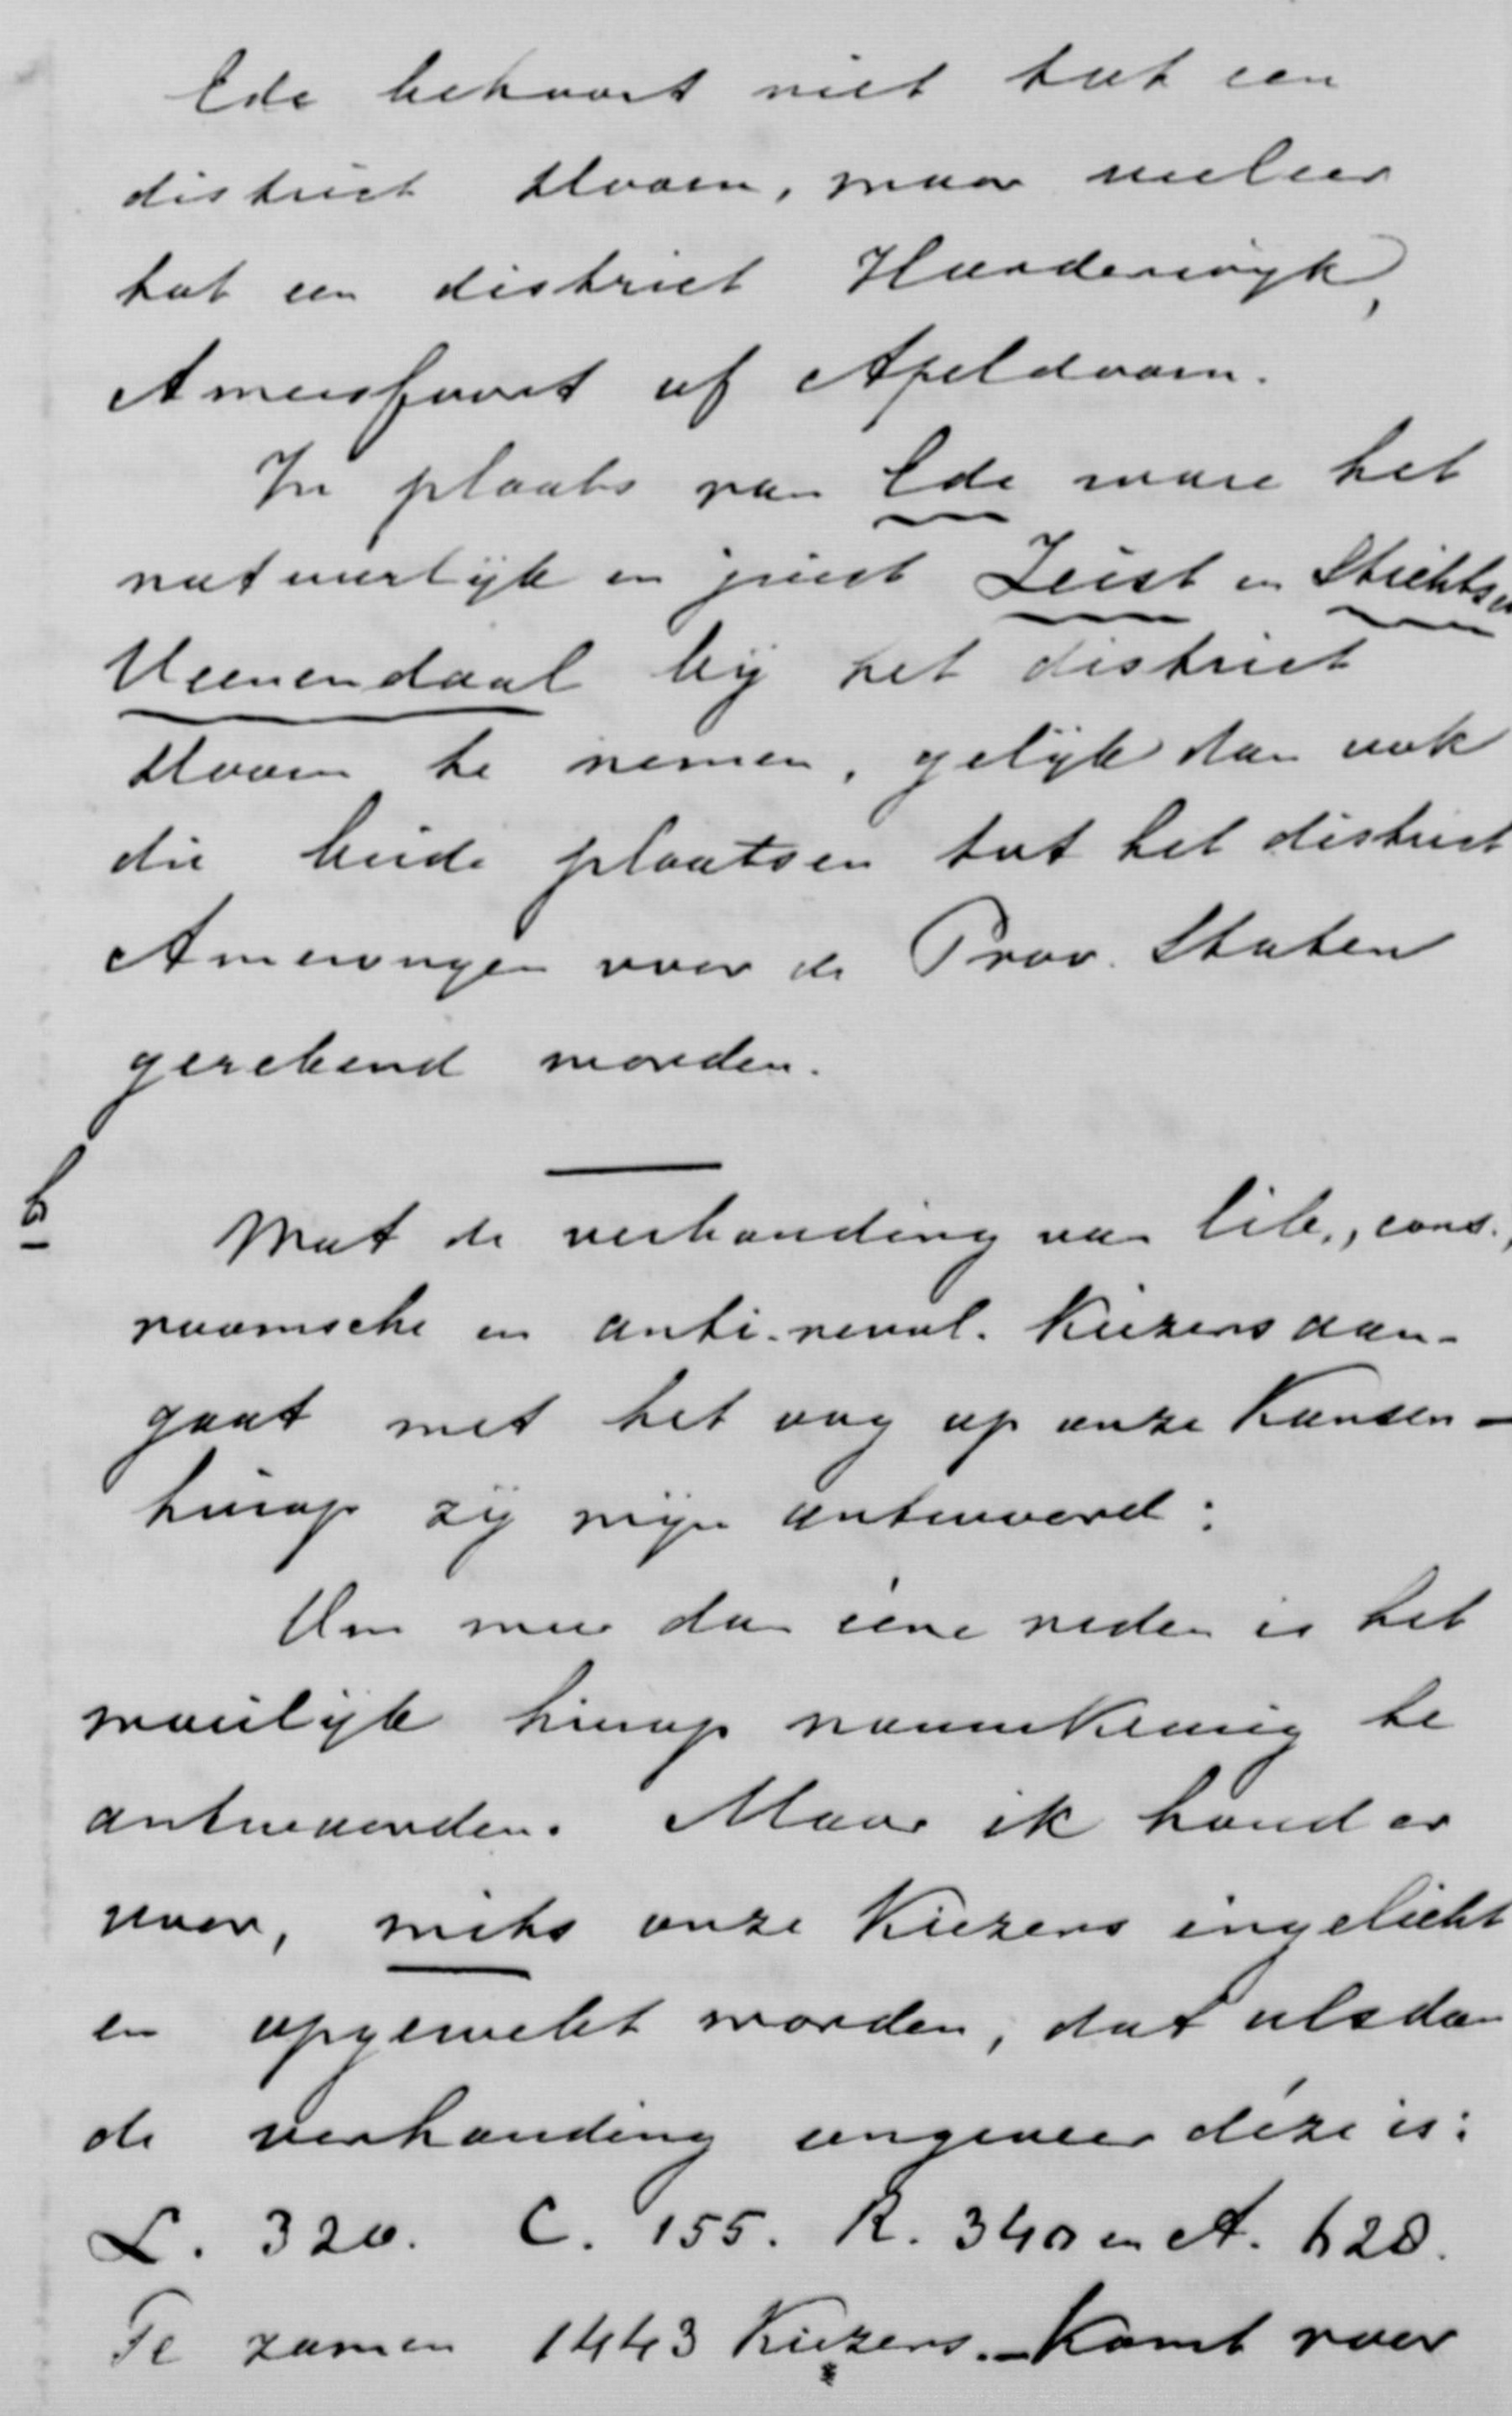 Ede behoort niet tot een
district Doorn, maar veeleer
tot een district Harderwijk,
Amersfoort of Apeldoorn.
In plaats van Ede ware het
natuurlijk en juist Zeist en Stichtsch
Veenendaal bij het district
Doorn te nemen, gelijk dan ook
die beide plaatsen tot het district
Amerongen voor de Prov. Staten
gerekend worden.
b
Wat de verhouding van lib., cons.,
roomsche en anti-revol. Kiezers aan-
gaat met het oog op onze Kansen -
hierop zij mijn antwoord:
Om meer dan ééne reden is het
moeilijk hierop nauwkeurig te
antwoorden. Maar ik houd er
voor, mits onze Kiezers ingelicht
en opgewekt worden, dat alsdan
de verhouding ongeveer deze is:
L. 320. C. 155. R. 340 en A. 628.
Te zamen 1443 Kiezers. - Komt voor